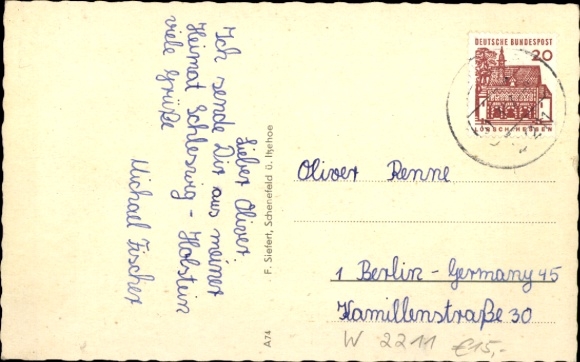 Lieber Oliver.
Ich sende Dir aus meiner
Heimat Schleswig-Holstein
viele Grüße
Michael Fischer
F. Siefert, Schenefeld ü. Itzehoe
A74
DEUTSCHE BUNDESPOST
20
LORSCH/HESSEN
Oliver Renne
1 Berlin-Germany 45
Kamillenstraße 30
W 2211 €15,-